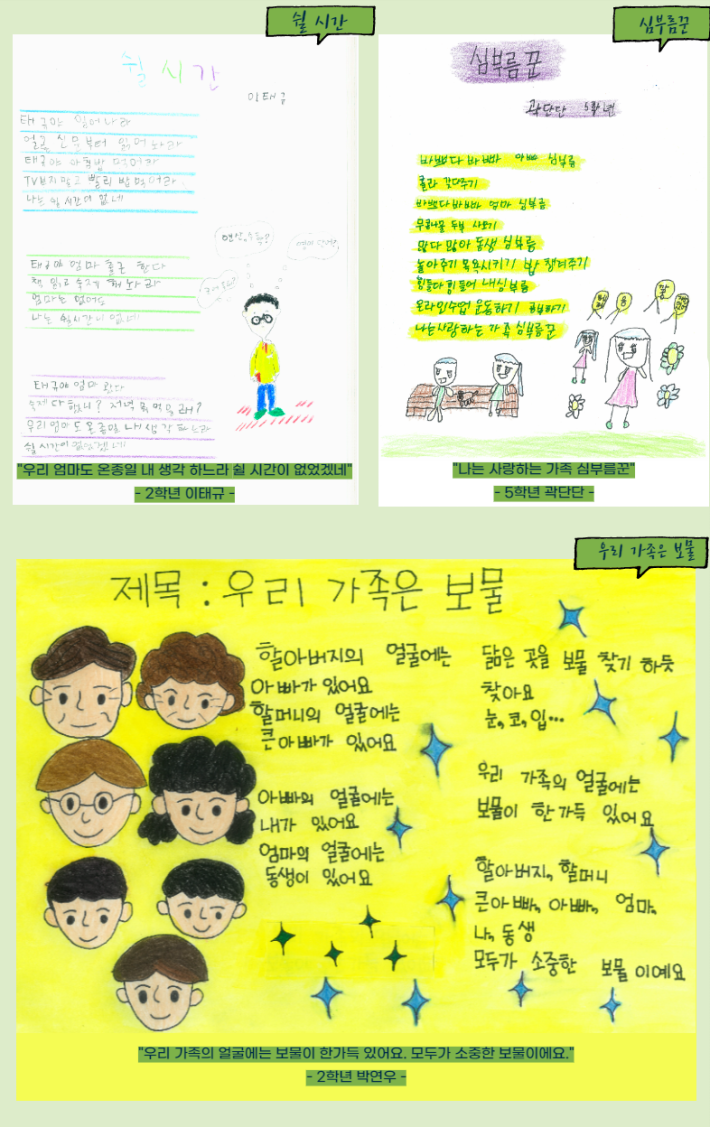 쉴 시간
쉴 시간
이태규
태규야 일어나라
얼른 신문부터 읽어라
태규야 아침밥 먹어라
TV보지말고 빨리 밥먹어라
나는 쉴 시간이 없네
태규야 엄마 출근 한다
책 읽고 숙제 해놔라
엄마는 없어도
나는 쉴시간이 없네
태규야 엄마 왔다
숙제 다 했니? 저녁 뭐 먹을래?
우리 엄마도 온종일 내 생각 하느라
쉴 시간이 없었겠네
"우리 엄마도 온종일 내 생각 하느라 쉴 시간이 없었겠네"
- 2학년 이태규 -
심부름꾼
심부름꾼
곽단단 5학년
바쁘다 바빠 아빠 심부름
콜라 갖다주기
바쁘다 바빠 엄마 심부름
무 콩나물 두부 사오기
많다 많아 동생 심부름
놀아주기 목욕시키기 밥 챙겨주기
힘들다 힘들어 내 심부름
온라인수업 운동하기
나는 사랑하는 가족 심부름꾼
"나는 사랑하는 가족 심부름꾼"
- 5학년 곽단단 -
우리 가족은 보물
제목 : 우리 가족은 보물
할아버지의 얼굴에는
아빠가 있어요
할머니의 얼굴에는
큰아빠가 있어요
아빠의 얼굴에는
내가 있어요
엄마의 얼굴에는
동생이 있어요
닮은 곳을 보물 찾기 하듯
찾아요
눈, 코, 입...
우리 가족의 얼굴에는
보물이 한가득 있어요
할아버지, 할머니
큰아빠, 아빠, 엄마,
나, 동생
모두가 소중한 보물이예요
"우리 가족의 얼굴에는 보물이 한가득 있어요. 모두가 소중한 보물이에요."
- 2학년 박연우 -